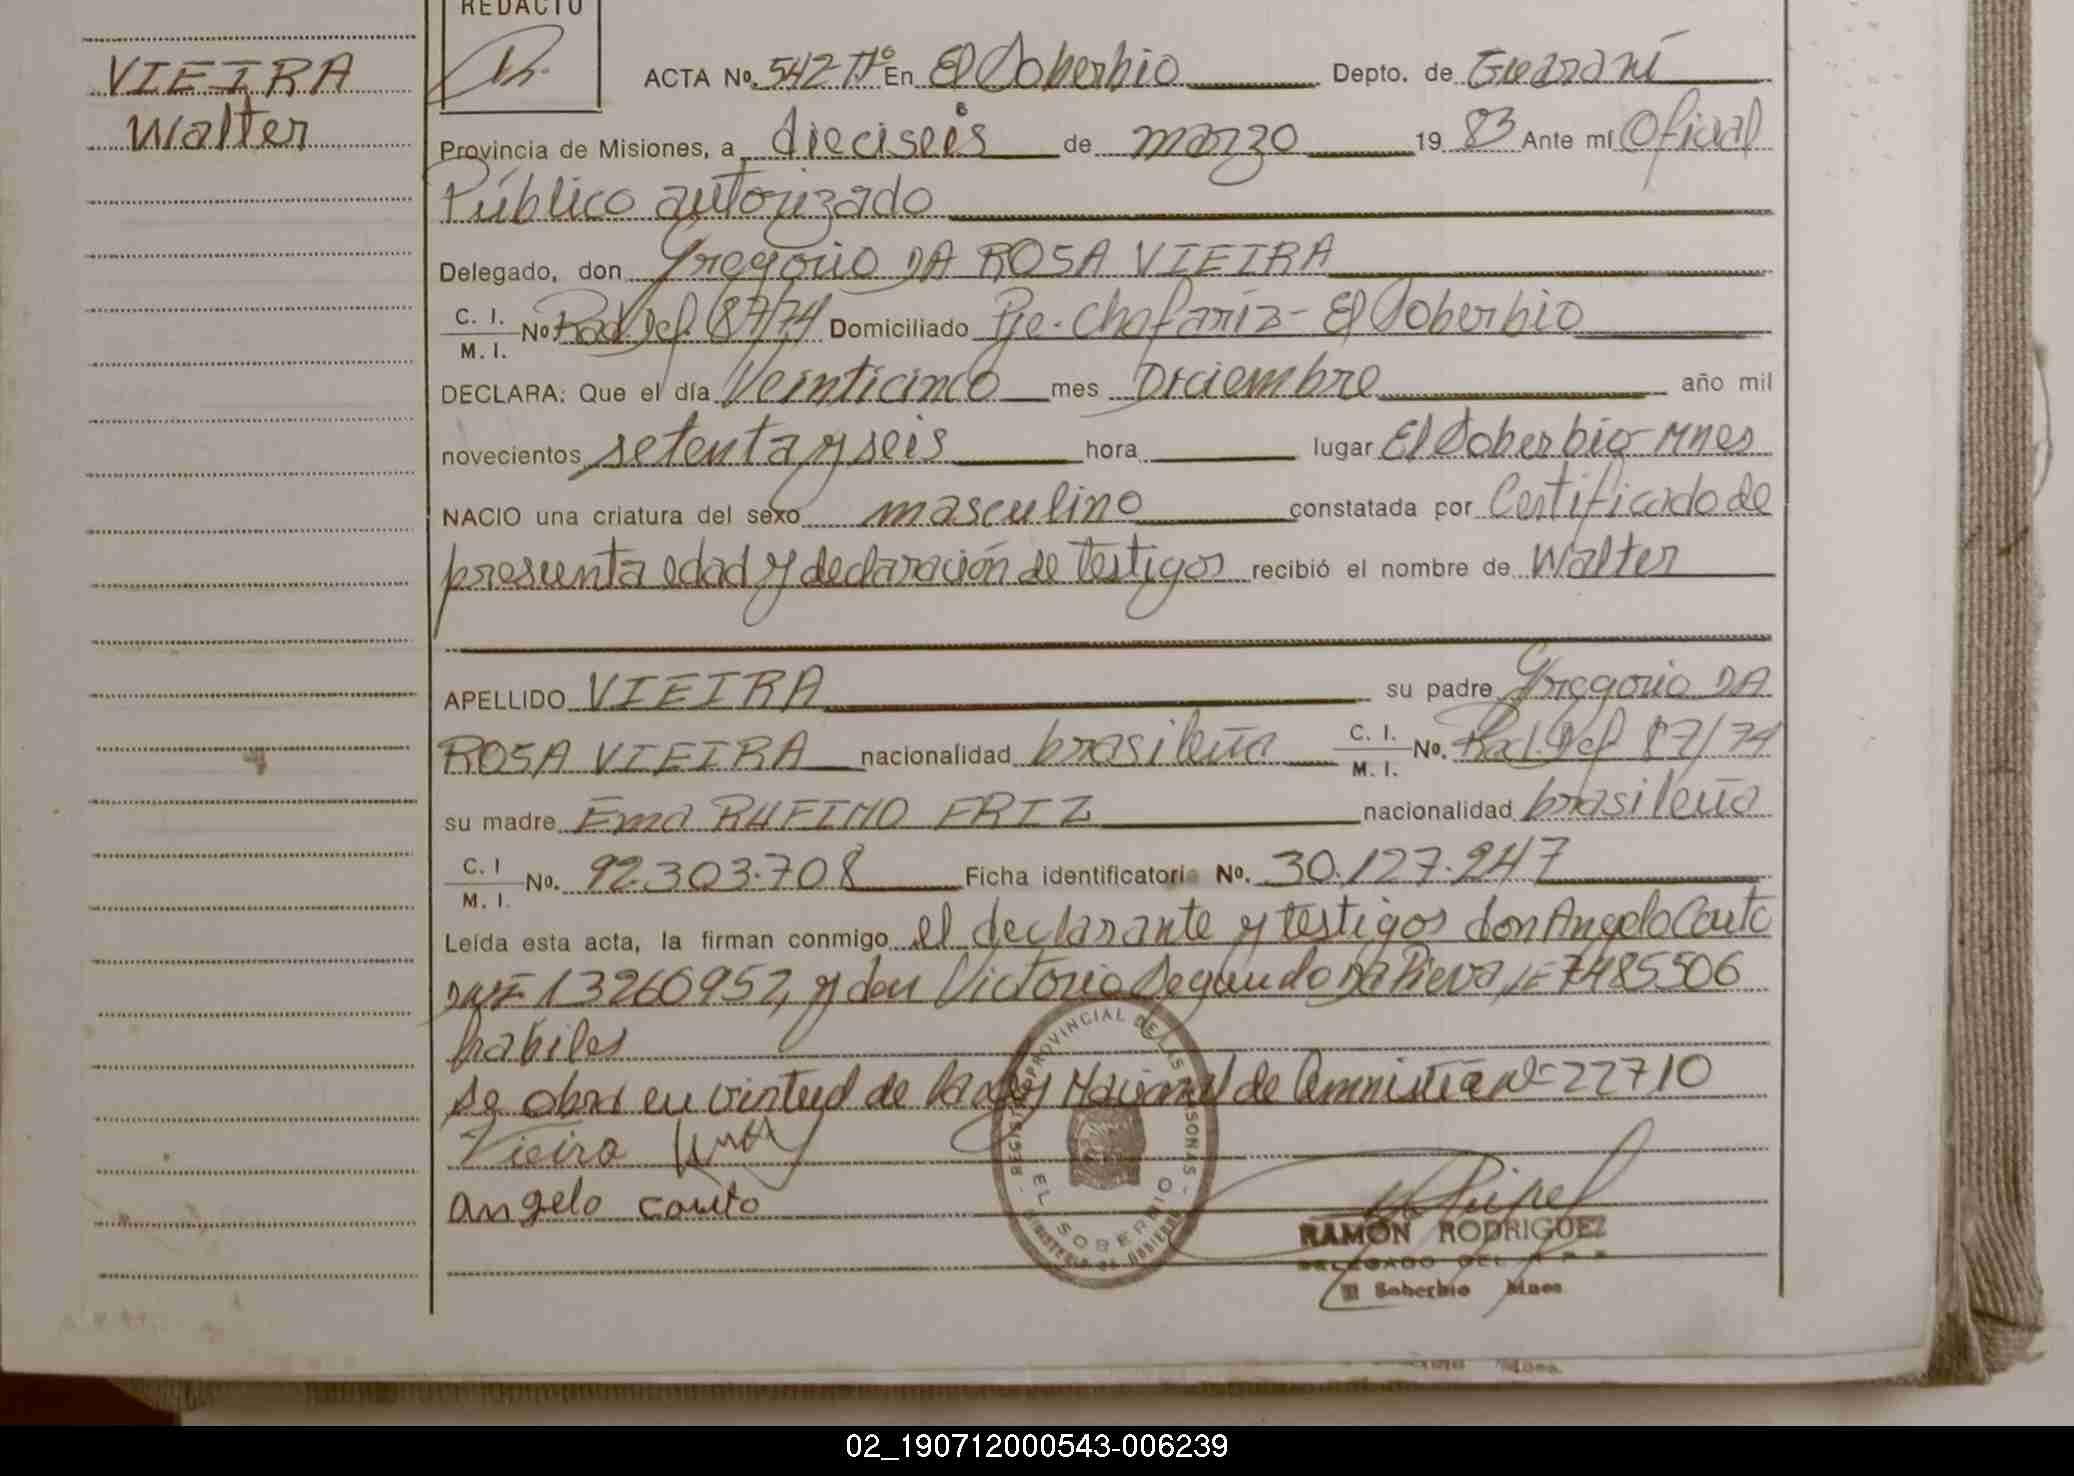 REDACTO
VIEIRA
Walter
ACTA No. 542 Tº En El Soberbio Depto. de Guaraní
Provincia de Misiones, a dieciseis de marzo 19 83 Ante mí Oficial
Público autorizado
Delegado, don Gregorio DA ROSA VIEIRA
C. I. M. I. No. Rad. Def. 87/74 Domiciliado Pje. Chafaríz - El Soberbio
DECLARA: Que el día Veinticinco mes Diciembre año mil
novecientos setenta y seis hora lugar El Soberbio - Mnes
NACIO una criatura del sexo masculino constatada por Certificado de
presunta edad y declaración de testigos recibió el nombre de Walter
APELLIDO VIEIRA su padre Gregorio DA
ROSA VIEIRA nacionalidad brasileña C. I. M. I. No. Rad. Def. 87/74
su madre Ema RUFINO FRIZ nacionalidad brasileña
C. I M. I. No. 92.303.708 Ficha identificatoria No. 30.127.247
Leída esta acta, la firman conmigo el declarante y testigos don Angelo Couto
DNI 13260952, y don Victorio Segundo Da Pieva, LE 7485506
hábiles
Se obra en virtud de la Ley Nacional de Amnistía nº 22710
Vieira
Angelo couto
REGISTRO PROVINCIAL DE LAS PERSONAS
EL SOBERBIO
MINISTERIO DE GOBIERNO
RAMON RODRIGUEZ
DELEGADO DEL R P P
El Soberbio Mnes
02_190712000543-006239